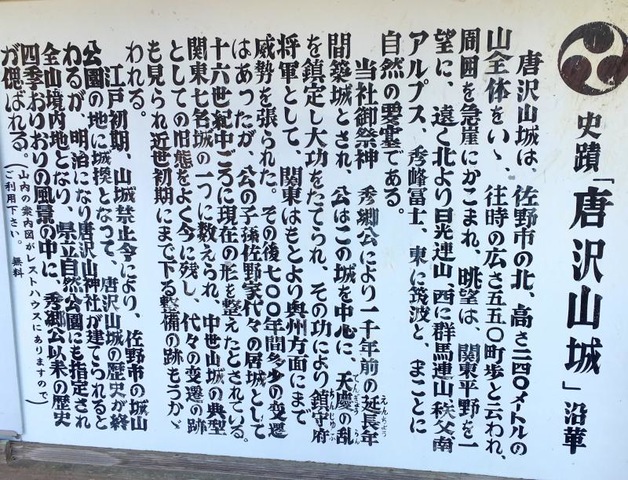 史蹟「唐沢山城」沿革
唐沢山城は、佐野市の北、高さ二四〇メートルの
山全体をいゝ、往時の広さ五五〇町歩と云われ、
周囲を急崖にかこまれ、眺望は、関東平野を一
望に、遠く北より日光連山、西に群馬連山、秩父南
アルプス、秀峰富士、東に筑波と、まことに
自然の要害である。
当社御祭神 秀郷公により一千年前の延長年
えんちょう
間築城とされ、公はこの城を中心に、天慶の乱
てんぎょう らん
を鎮定し大功をたてられ、その功により鎮守府
ちんじゅふ
将軍として、関東はもとより奥州方面にまで
威勢を張られた。その後七〇〇年間多少の変遷
はあったが、公の子孫佐野家代々の居城として
十六世紀中ごろに現在の形を整えたとされている。
関東七名城の一つに数えられ、中世山城の典型
としての旧態をよく今に残し、代々の変遷の跡
も見られ近世初期にまで下る整備の跡もうかゞ
われる。
江戸初期、山城禁止令により、佐野市の城山
公園の地に城換となって、唐沢山城の歴史が終
わるが、明治になり唐沢山神社が建てられると
全山境内地となり、県立自然公園にも指定され
四季おりおりの風景の中に、秀郷公以来の歴史
が偲ばれる。
(山内の案内図がレストハウスにありますので)
ご利用下さい。 無料